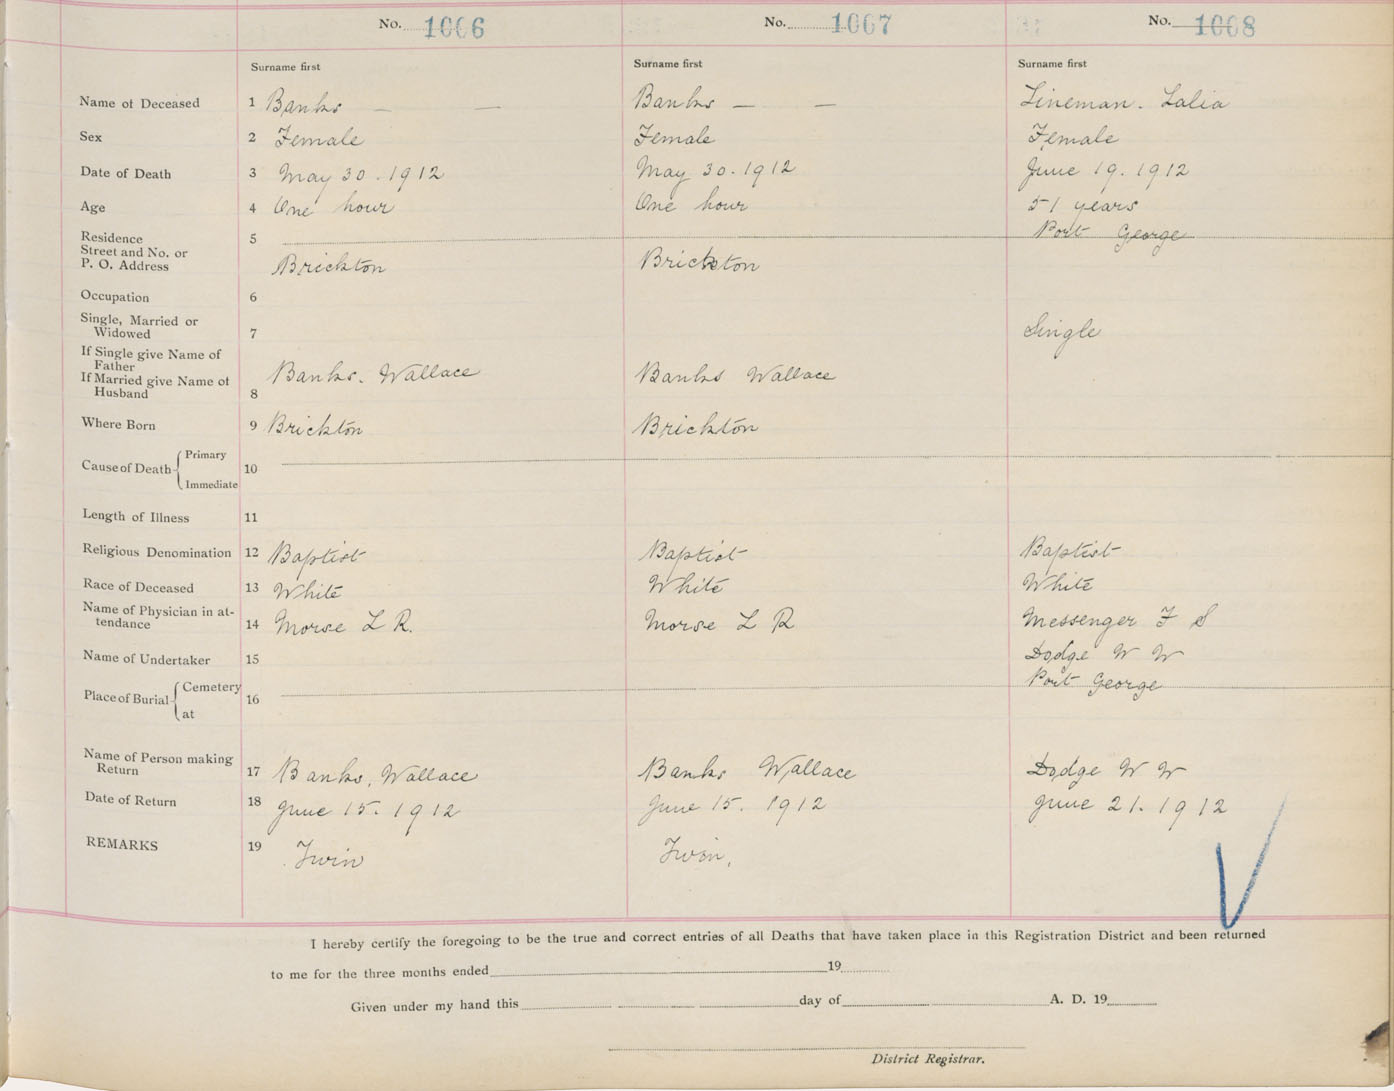 No. 1006 No. 1007 No. 1008
Surname first Surname first Surname first
Name of Deceased 1 Banks — — Banks — — Lineman. Lalia
Sex 2 Female Female Female
Date of Death 3 May 30. 1912 May 30. 1912 June 19. 1912
Age 4 One hour One hour 51 years
Residence 5 Port George
Street and No. or
P. O. Address Brickton Brickton
Occupation 6
Single, Married or
Widowed 7 Single
If Single give Name of
Father Banks. Wallace Banks Wallace
If Married give Name of
Husband 8
Where Born 9 Brickton Brickton
Cause of Death Primary
10
Immediate
Length of Illness 11
Religious Denomination 12 Baptist Baptist Baptist
Race of Deceased 13 White White White
Name of Physician in at-
tendance 14 Morse L R. Morse L R Messenger F S
Name of Undertaker 15 Dodge W W
Place of Burial Cemetery Port George
16
at
Name of Person making
Return 17 Banks, Wallace Banks Wallace Dodge W W
Date of Return 18 June 15. 1912 June 15. 1912 June 21. 1912
REMARKS 19 Twin Twin.
I hereby certify the foregoing to be the true and correct entries of all Deaths that have taken place in this Registration District and been returned
to me for the three months ended 19
Given under my hand this day of A. D. 19
District Registrar.